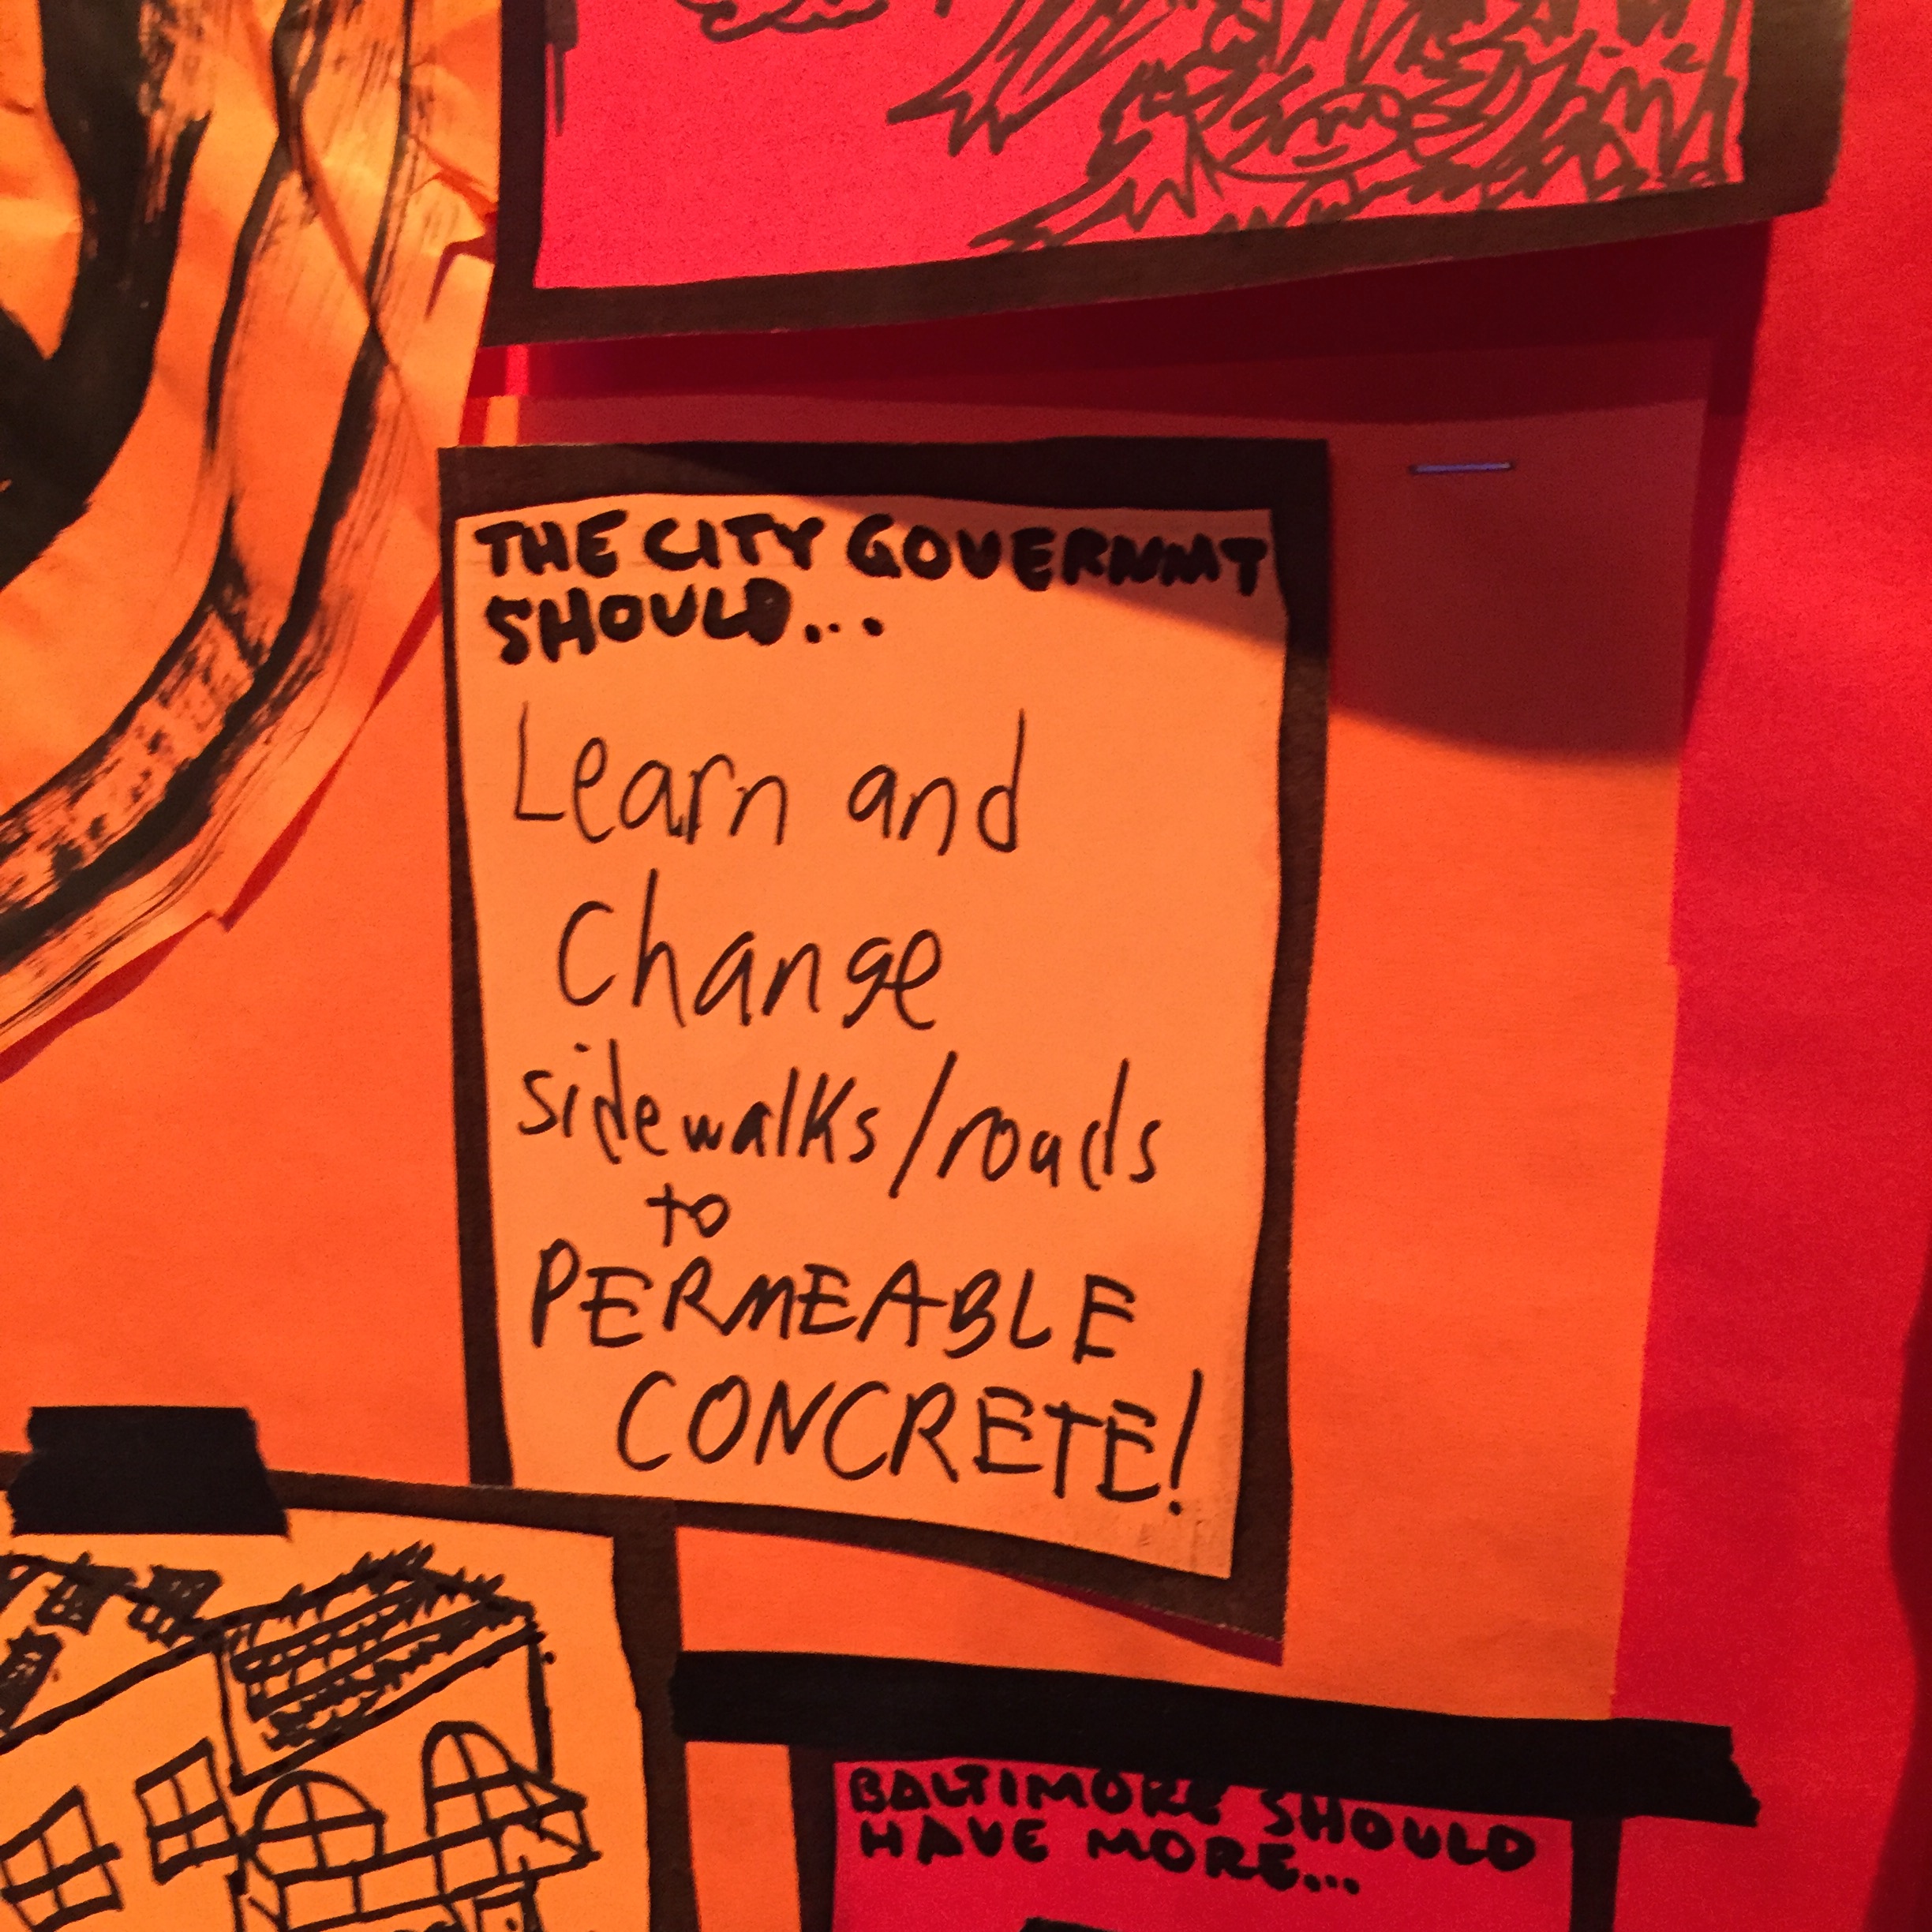 THE CITY GOVERNMT
SHOULD...
Learn and
Change
sidewalks/roads
to
PERMEABLE
CONCRETE!
BALTIMORE SHOULD
HAVE MORE...